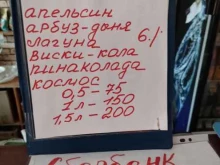 апельсин
арбуз-дыня
лагуна б./
виски-кола
пинаколада
космос
0,5-75
1л-150
1,5л-200
Сбербанк